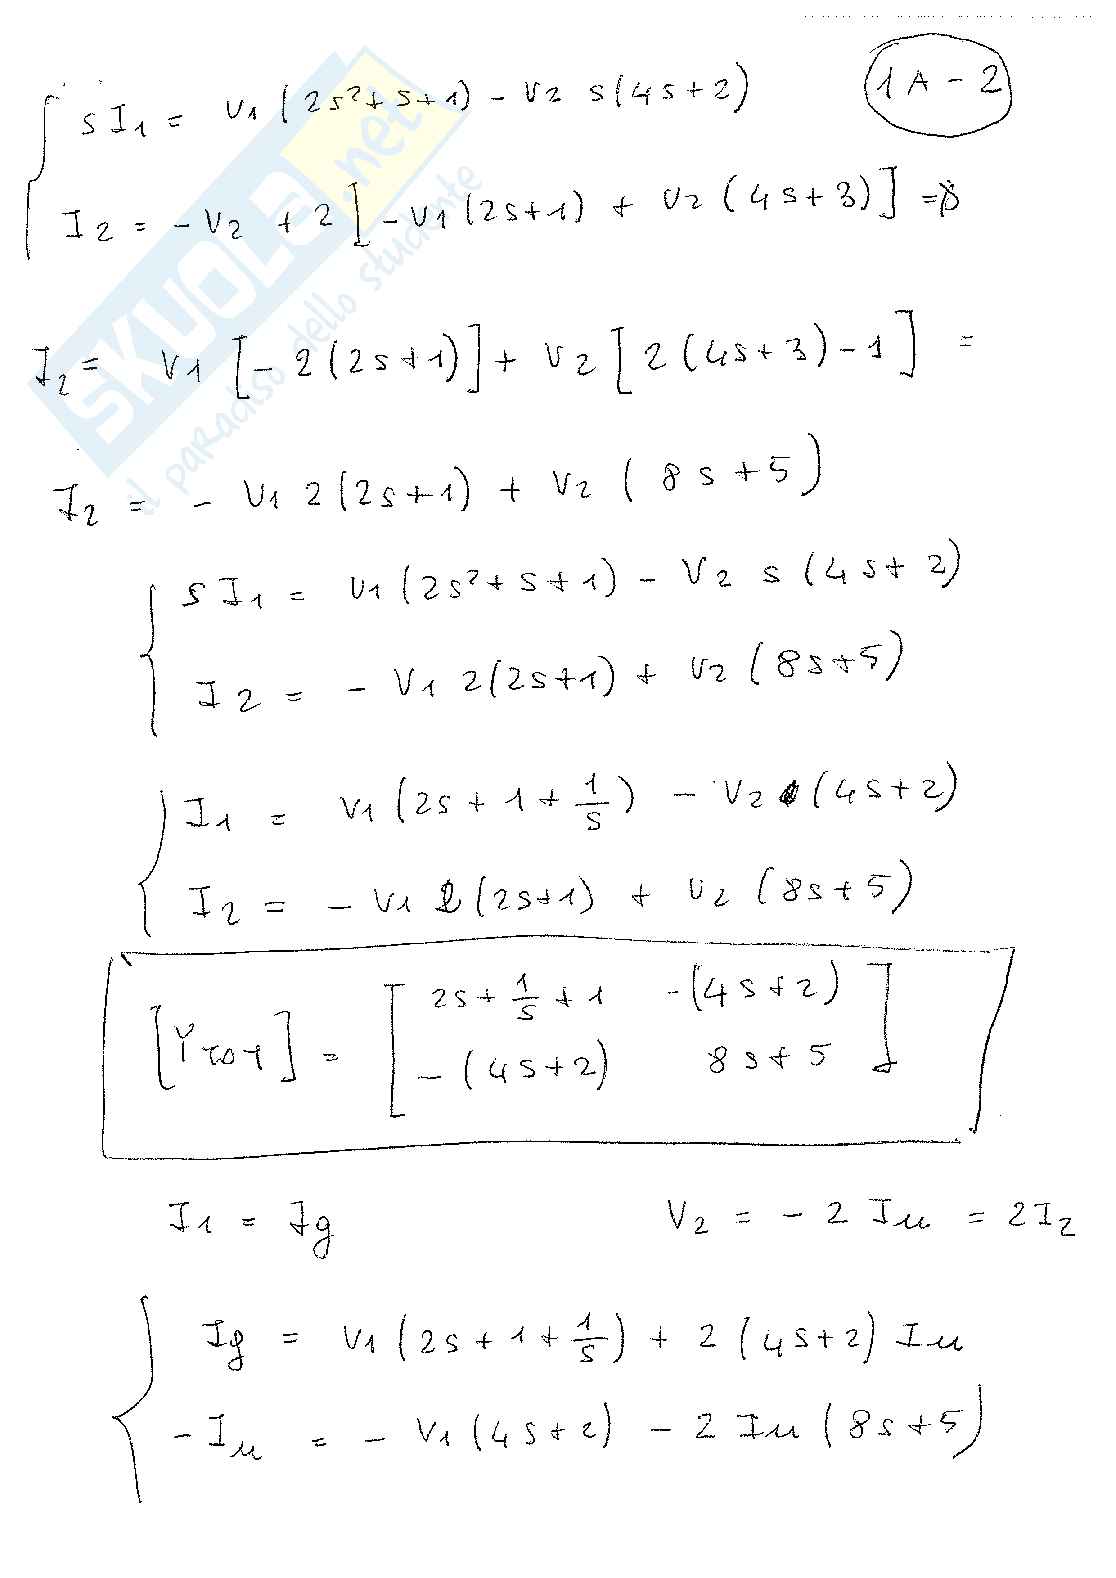 1A-2
sI1 = V1 (2s²+s+1) - V2 s(4s+2)
I2 = -V2 + 2[-V1(2s+1) + V2(4s+3)] =
I2 = V1 [-2(2s+1)] + V2 [2(4s+3)-1] =
I2 = - V1 2(2s+1) + V2 (8s+5)
sI1 = V1(2s²+s+1) - V2 s(4s+2)
I2 = - V1 2(2s+1) + V2 (8s+5)
I1 = V1(2s+1+1/s) - V2 (4s+2)
I2 = - V1 2(2s+1) + V2 (8s+5)
[YTOT] = [ 2s+1/s+1 -(4s+2)
-(4s+2) 8s+5 ]
I1 = Ig V2 = -2Iu = 2I2
Ig = V1(2s+1+1/s) + 2(4s+2) Iu
-Iu = - V1(4s+2) - 2Iu(8s+5)
SKUOLA.net
il paradiso dello studente